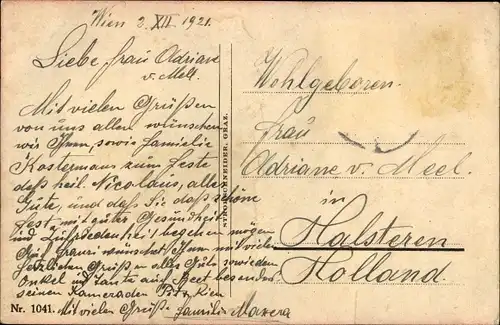 Wien 2. XII 1921.
Liebe Frau Adriane
v. Mell.
Mit vielen Grüßen
von uns allen wünschen
wir Ihnen, sowie Familie
Kostermans zum Feste
daß heil. Nicolaus, alles
Gute, und daß Sie daß schöne
Fest mit guter Gesundheit
und Zufriedenheit begehen mögen
Franzi wünschet Ihnen mit vielen
herzlichen Grüßen alles Gute sowie den
Onkel und Tante aus Best besonders
seinen Kameraden Pit u. Rien
Mit vielen Grüßen Familie Maxera
Nr. 1041.
STROHSCHNEIDER, GRAZ.
Wohlgeboren
Frau
Adriane v. Meel.
in
Halsteren
Holland